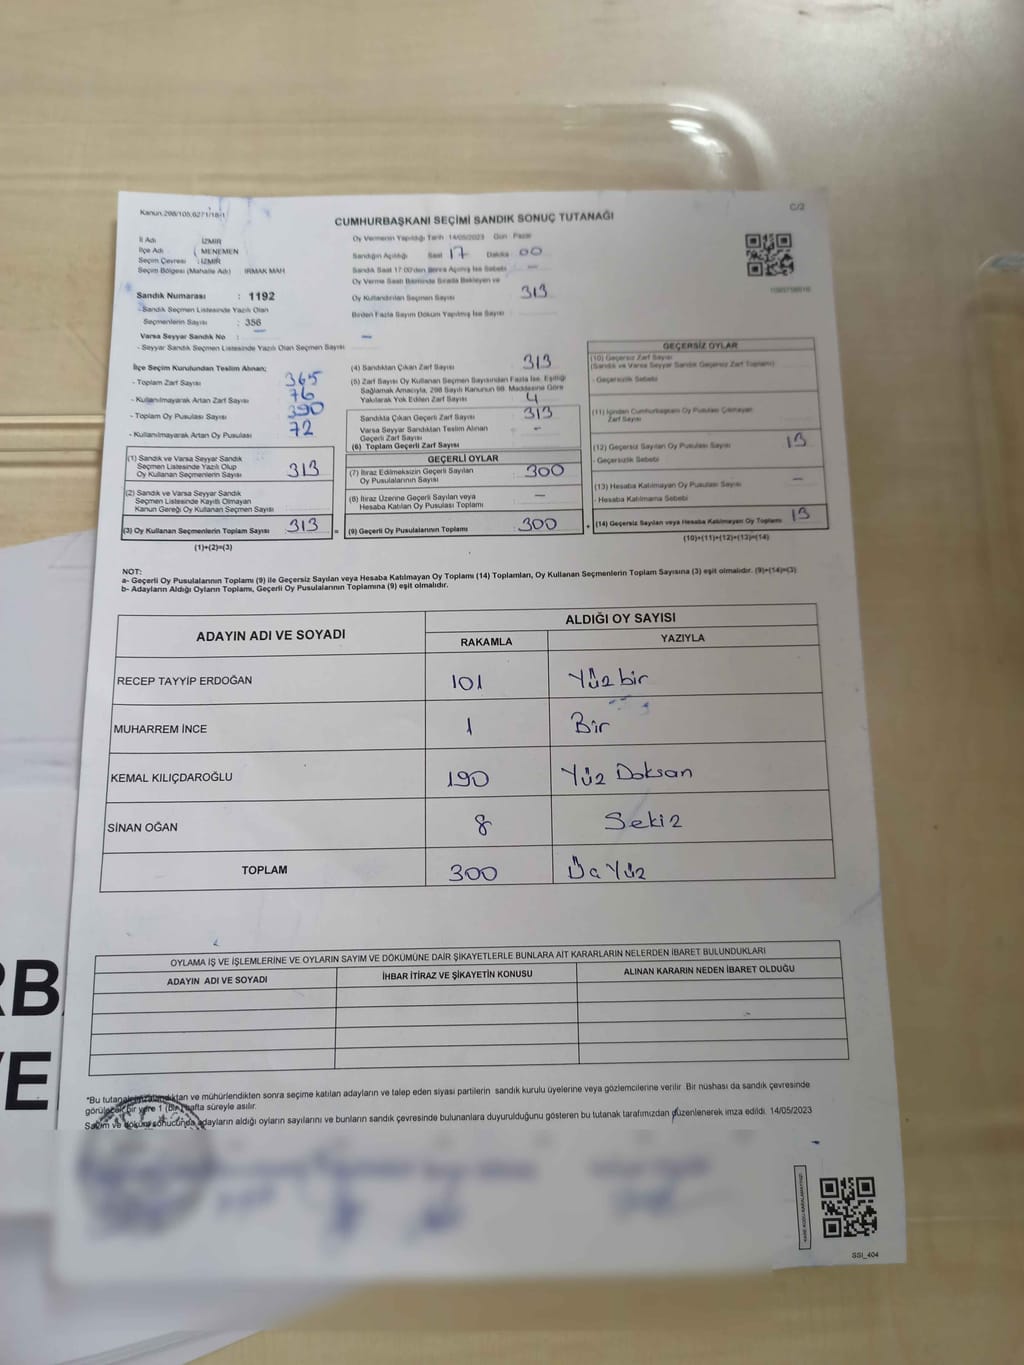 Kanun.298/105,6271/18-1
C/2
CUMHURBAŞKANI SEÇİMİ SANDIK SONUÇ TUTANAĞI
İl Adı : İZMİR
İlçe Adı ( MENEMEN
Seçim Çevresi : İZMİR
Seçim Bölgesi (Mahalle Adı) IRMAK MAH
Sandık Numarası : 1192
Sandık Seçmen Listesinde Yazılı Olan
Seçmenlerin Sayısı : 356
Varsa Seyyar Sandık No : —
- Seyyar Sandık Seçmen Listesinde Yazılı Olan Seçmen Sayısı —
Oy Vermenin Yapıldığı Tarih 14/05/2023 Gün : Pazar
Sandığın Açıldığı Saat 17 Dakika 00
Sandık Saat 17:00'den Sonra Açılmış İse Sebebi —
Oy Verme Saati Bitiminde Sırada Bekleyen ve
Oy Kullandırılan Seçmen Sayısı 313
Birden Fazla Sayım Döküm Yapılmış İse Sayısı
İlçe Seçim Kurulundan Teslim Alınan;
- Toplam Zarf Sayısı 365
- Kullanılmayarak Artan Zarf Sayısı 76
- Toplam Oy Pusulası Sayısı 390
- Kullanılmayarak Artan Oy Pusulası 72
(1) Sandık ve Varsa Seyyar Sandık
Seçmen Listesinde Yazılı Olup
Oy Kullanan Seçmenlerin Sayısı 313
(2) Sandık ve Varsa Seyyar Sandık
Seçmen Listesinde Kayıtlı Olmayan
Kanun Gereği Oy Kullanan Seçmen Sayısı
(3) Oy Kullanan Seçmenlerin Toplam Sayısı 313 =
(1)+(2)=(3)
(4) Sandıktan Çıkan Zarf Sayısı 313
(5) Zarf Sayısı Oy Kullanan Seçmen Sayısından Fazla İse, Eşitliği
Sağlamak Amacıyla, 298 Sayılı Kanunun 98. Maddesine Göre
Yakılarak Yok Edilen Zarf Sayısı 4
Sandıkta Çıkan Geçerli Zarf Sayısı 313
Varsa Seyyar Sandıktan Teslim Alınan
Geçerli Zarf Sayısı -
(6) Toplam Geçerli Zarf Sayısı
GEÇERLİ OYLAR
(7) İtiraz Edilmeksizin Geçerli Sayılan
Oy Pusulalarının Sayısı : 300
(8) İtiraz Üzerine Geçerli Sayılan veya
Hesaba Katılan Oy Pusulası Toplamı : —
(9) Geçerli Oy Pusulalarının Toplamı : 300 +
GEÇERSİZ OYLAR
(10) Geçersiz Zarf Sayısı
(Sandık ve Varsa Seyyar Sandık Geçersiz Zarf Toplamı)
- Geçersizlik Sebebi
(11) İçinden Cumhurbaşkanı Oy Pusulası Çıkmayan
Zarf Sayısı
(12) Geçersiz Sayılan Oy Pusulası Sayısı 13
- Geçersizlik Sebebi
(13) Hesaba Katılmayan Oy Pusulası Sayısı —
- Hesaba Katılmama Sebebi
(14) Geçersiz Sayılan veya Hesaba Katılmayan Oy Toplamı 13
(10)+(11)+(12)+(13)=(14)
NOT:
a- Geçerli Oy Pusulalarının Toplamı (9) ile Geçersiz Sayılan veya Hesaba Katılmayan Oy Toplamı (14) Toplamları, Oy Kullanan Seçmenlerin Toplam Sayısına (3) eşit olmalıdır. (9)+(14)=(3)
b- Adayların Aldığı Oyların Toplamı, Geçerli Oy Pusulalarının Toplamına (9) eşit olmalıdır.
ADAYIN ADI VE SOYADI
ALDIĞI OY SAYISI
RAKAMLA YAZIYLA
RECEP TAYYİP ERDOĞAN 101 Yüz bir
MUHARREM İNCE 1 Bir
KEMAL KILIÇDAROĞLU 190 Yüz Doksan
SİNAN OĞAN 8 Sekiz
TOPLAM 300 Üç Yüz
OYLAMA İŞ VE İŞLEMLERİNE VE OYLARIN SAYIM VE DÖKÜMÜNE DAİR ŞİKAYETLERLE BUNLARA AİT KARARLARIN NELERDEN İBARET BULUNDUKLARI
ADAYIN ADI VE SOYADI İHBAR İTİRAZ VE ŞİKAYETİN KONUSU ALINAN KARARIN NEDEN İBARET OLDUĞU
RB
VE
*Bu tutanak imzalandıktan ve mühürlendikten sonra seçime katılan adayların ve talep eden siyasi partilerin sandık kurulu üyelerine veya gözlemcilerine verilir. Bir nüshası da sandık çevresinde
görülecek bir yere 1 (Bir) hafta süreyle asılır.
Sayım ve döküm sonucunda adayların aldığı oyların sayılarını ve bunların sandık çevresinde bulunanlara duyurulduğunu gösteren bu tutanak tarafımızdan düzenlenerek imza edildi. 14/05/2023
SSI_404